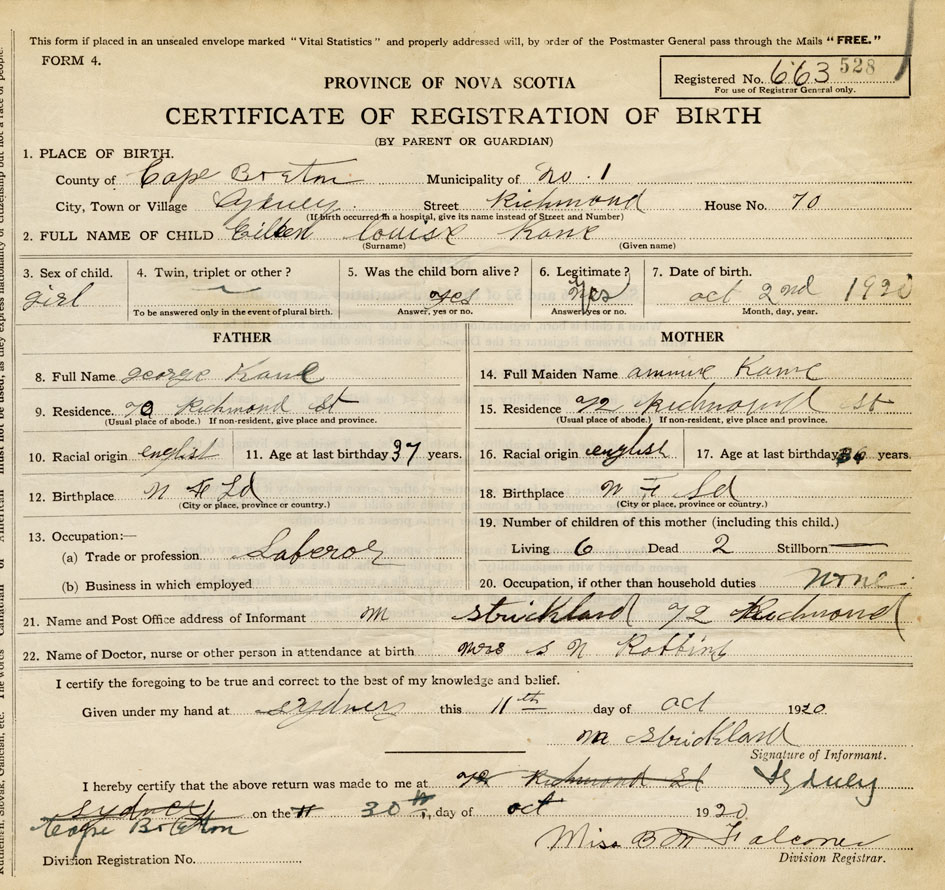 This form if placed in an unsealed envelope marked "Vital Statistics" and properly addressed will, by order of the Postmaster General pass through the Mails "FREE."
FORM 4.
Registered No. 663 528
For use of Registrar General only.
PROVINCE OF NOVA SCOTIA
CERTIFICATE OF REGISTRATION OF BIRTH
(BY PARENT OR GUARDIAN)
1. PLACE OF BIRTH.
County of Cape Breton Municipality of No. 1
City, Town or Village Sydney Street Richmond House No. 70
(If birth occurred in a hospital, give its name instead of Street and Number)
2. FULL NAME OF CHILD Eileen Louise Kane
(Surname) (Given name)
3. Sex of child. 4. Twin, triplet or other? 5. Was the child born alive? 6. Legitimate? 7. Date of birth.
girl yes yes oct 2nd 1920
To be answered only in the event of plural birth. Answer, yes or no. Answer yes or no. Month, day, year.
FATHER MOTHER
8. Full Name george Kane
14. Full Maiden Name Kane
9. Residence 70 Richmond St
15. Residence 72 Richmond St
(Usual place of abode.) If non-resident, give place and province.
(Usual place of abode.) If non-resident, give place and province.
10. Racial origin english 11. Age at last birthday 37 years.
16. Racial origin english 17. Age at last birthday years.
12. Birthplace N F Ld
(City or place, province or country.)
18. Birthplace N F Ld
(City or place, province or country.)
13. Occupation:—
(a) Trade or profession Laberor
(b) Business in which employed
19. Number of children of this mother (including this child.)
Living 6 Dead 2 Stillborn —
20. Occupation, if other than household duties none
21. Name and Post Office address of Informant M Strickland 72 Richmond
22. Name of Doctor, nurse or other person in attendance at birth Mrs S N Robbins
I certify the foregoing to be true and correct to the best of my knowledge and belief.
Given under my hand at Sydney this 11th day of oct 1920
M Strickland
Signature of Informant.
I hereby certify that the above return was made to me at 72 Richmond St Sydney
Sydney
Cape Breton on the 11 30th, day of oct 1920
Miss B M Falconer
Division Registrar.
Division Registration No.